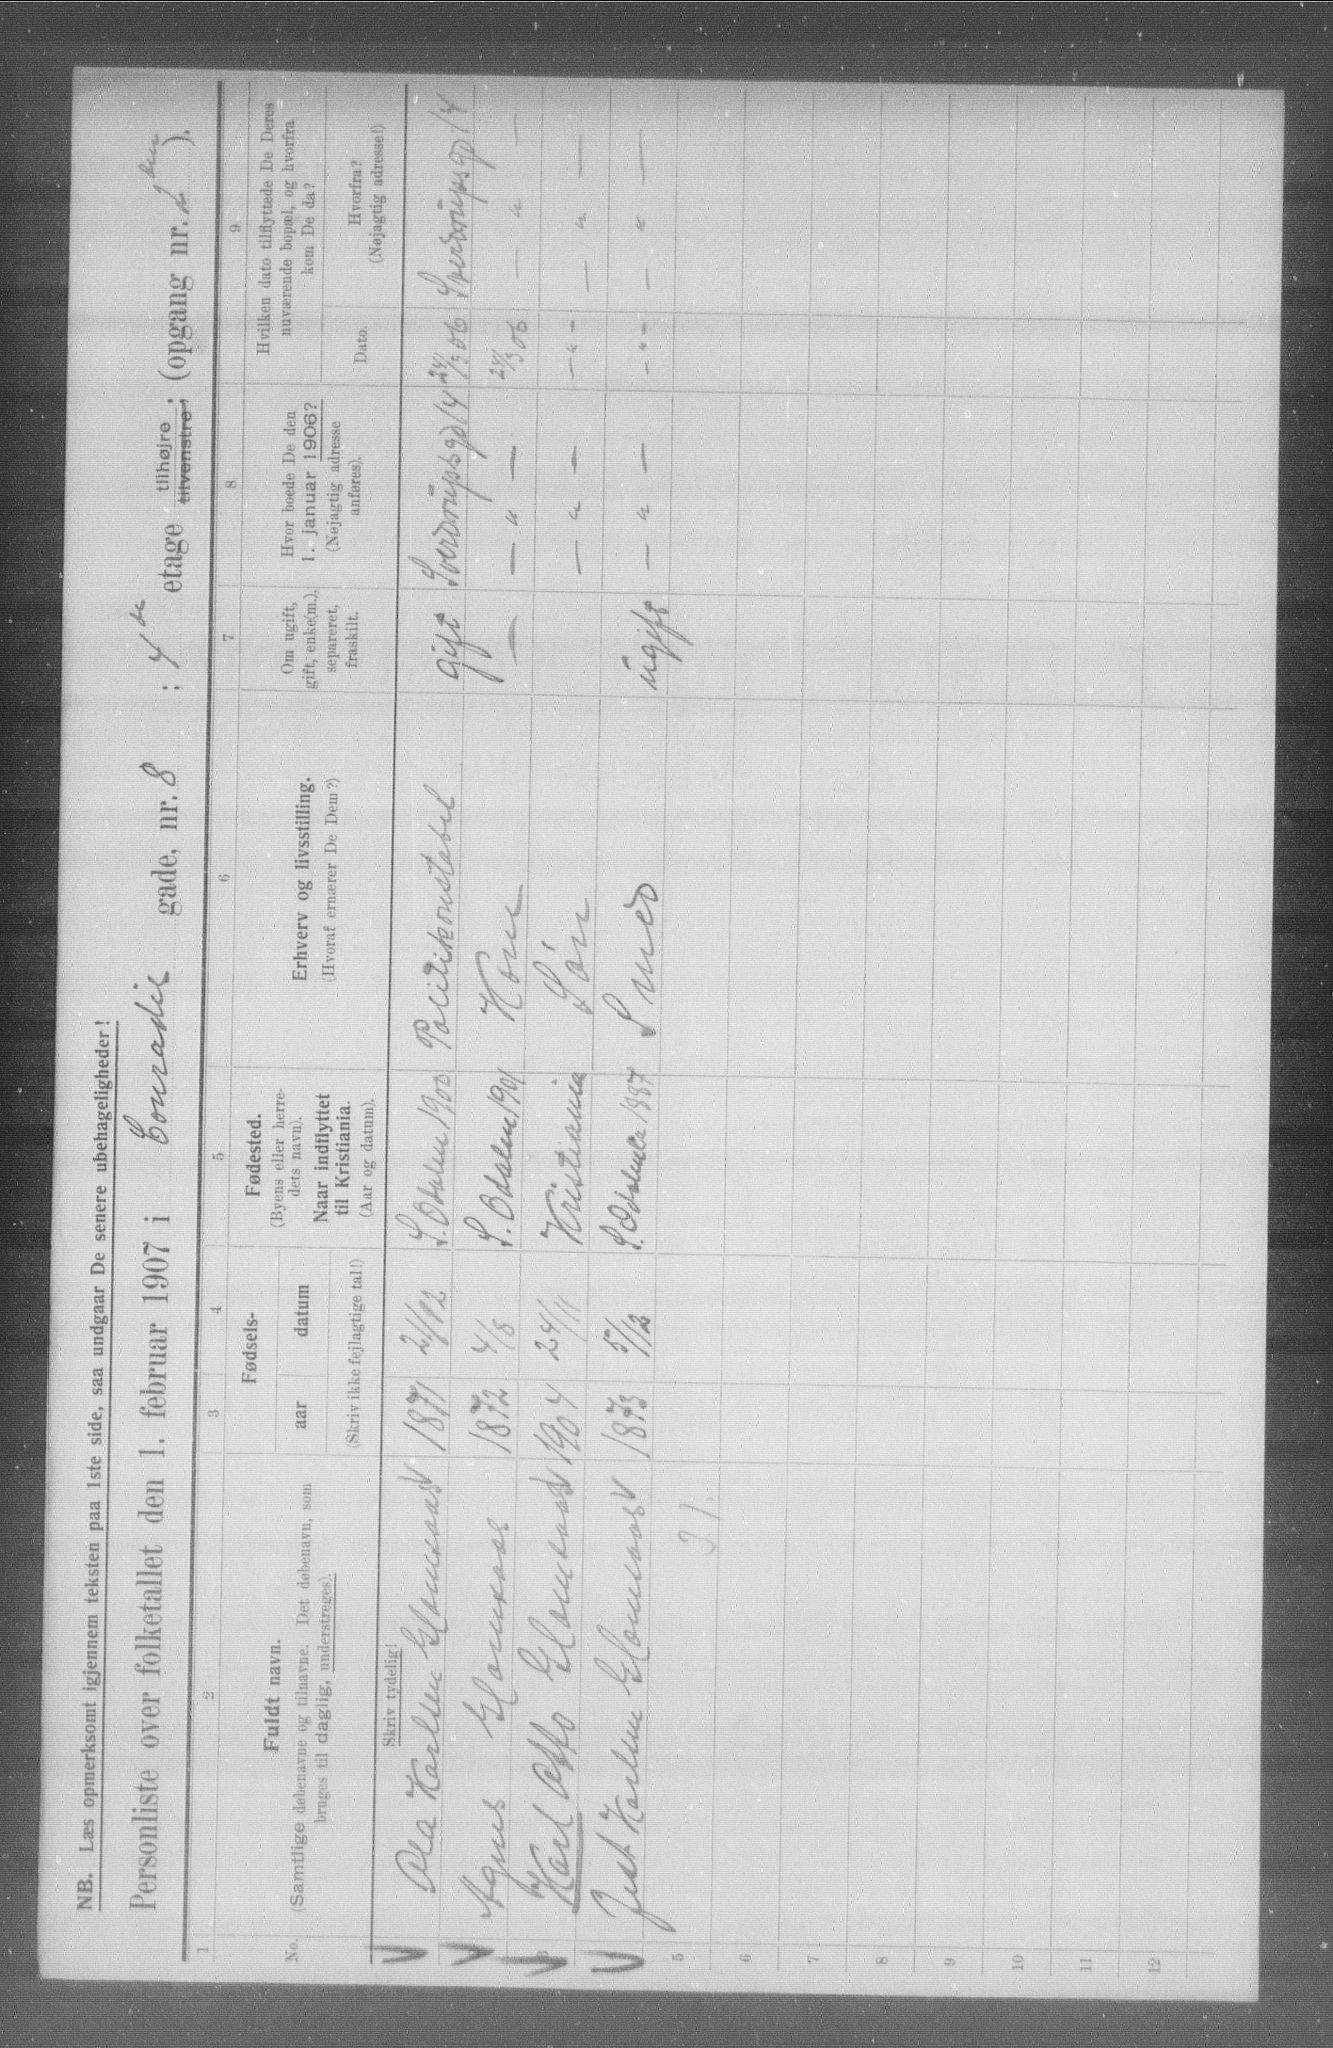 NB. Læs opmerksomt igjennem teksten paa 1ste side, saa undgaar De senere ubehageligheder!
Personliste over folketallet den 1. februar 1907 i Conradis gade, nr. 8 ; 4de etage tilhøjre tilvenstre; (opgang nr. 2den ).
1 2 3 4 5 6 7 8 9
No.
Fuldt navn.
(Samtlige døbenavne og tilnavne. Det døbenavn, som
bruges til daglig, understreges).
Fødsels-
aar datum
(Skriv ikke fejlagtige tal!)
Fødested.
(Byens eller herre-
dets navn).
Naar indflyttet
til Kristiania.
(Aar og datum).
Erhverv og livsstilling.
(Hvoraf ernærer De Dem?)
Om ugift,
gift, enke(m.),
separeret,
fraskilt.
Hvor boede De den
1. januar 1906?
(Nøjagtig adresse
anføres).
Hvilken dato tilflyttede De Deres
nuværende bopæl, og hvorfra
kom De da?
Dato.
Hvorfra?
(Nøjagtig adresse!)
Skriv tydelig!
Ola Karlsen 1871 21/12 S. Odalen 1900 Politikonstabel gift Sverdrupsgd 14 24/3 06 Sverdrupsgd 14
Agnes 1872 4/8 S. Odalen 1901 Kone — — " — 24/3 06 — " —
3 Karl 1904 24/11 Kristiania Sön — " — — " - — " —
Karlsen 1873 5/12 S. Odalen 1887 Smed ugift — " — - " - — " —
3 1.
5
6
7
8
9
10
11
12